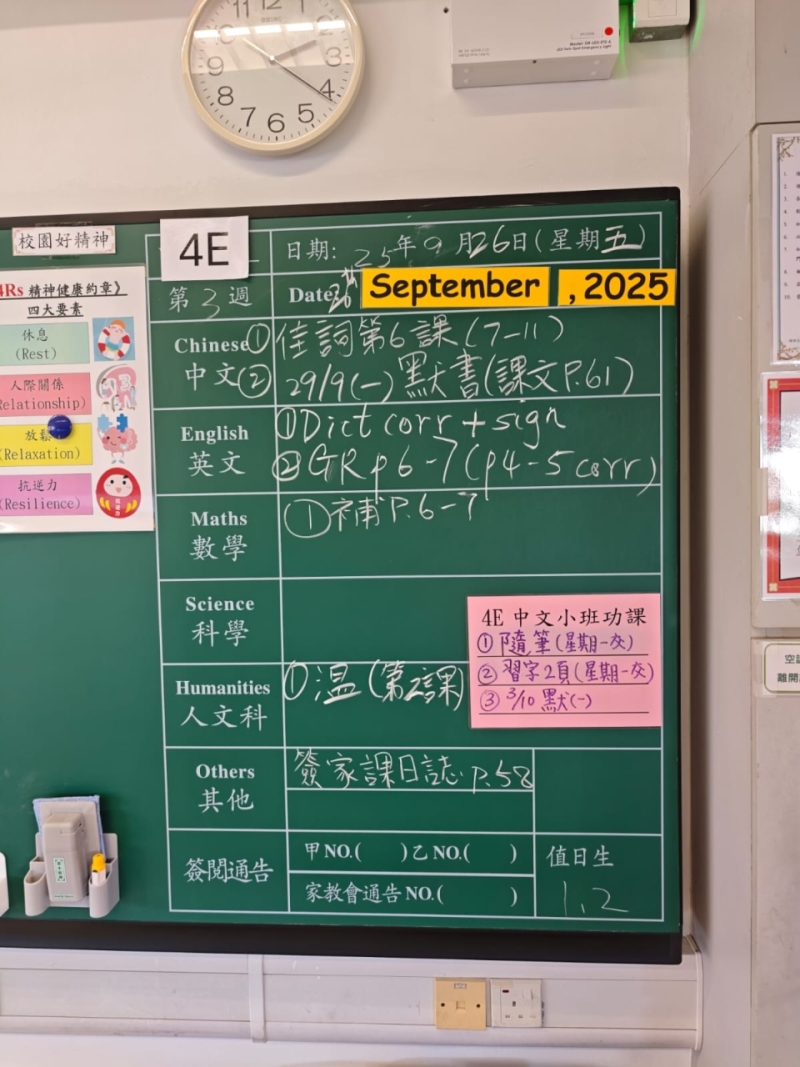 校園好精神
4E
日期: 25年9月26日(星期五)
第3週
Date: 26th September, 2025
4Rs 精神健康約章》
四大要素
休息
(Rest)
人際關係
Relationship)
放鬆
(Relaxation)
抗逆力
(Resilience)
Chinese 中文
①佳詞第6課(7-11)
②29/9(一)默書(課文P.61)
English 英文
①Dict corr + sign
②GR p6-7(p4-5 corr)
Maths 數學
①補P.6-7
Science 科學
4E 中文小班功課
①隨筆(星期一交)
②習字2頁(星期一交)
③3/10 默(一)
Humanities 人文科
①溫(第2課)
Others 其他
簽家課日誌 p.58
簽閱通告
甲NO.( )乙NO.( )
家教會通告NO.( )
值日生
1,2
11 12 2 3 4 5 6 7 8 9 10
SEIKO